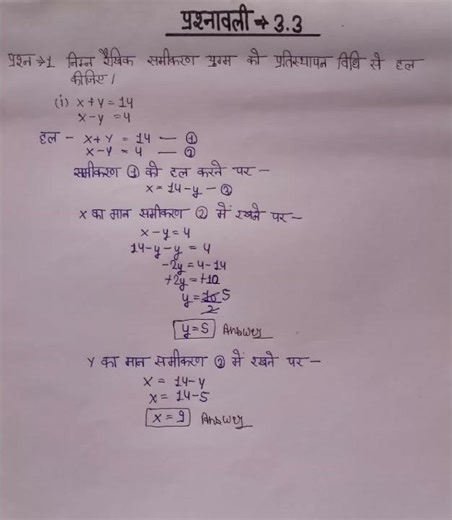 प्रश्नावली → 3.3
प्रश्न → 1 निम्न रैखिक समीकरण युग्म को प्रतिस्थापन विधि से हल
कीजिए।
(i) x+y = 14
x-y = 4
हल - x+y = 14 — ①
x-y = 4 — ②
समीकरण ① को हल करने पर -
x = 14-y - ③
x का मान समीकरण ② में रखने पर -
x-y = 4
14-y-y = 4
-2y = 4-14
+2y = +10
y = 10 5
2
y = 5 Answer
y का मान समीकरण ③ में रखने पर -
x = 14-y
x = 14-5
x = 9 Answer